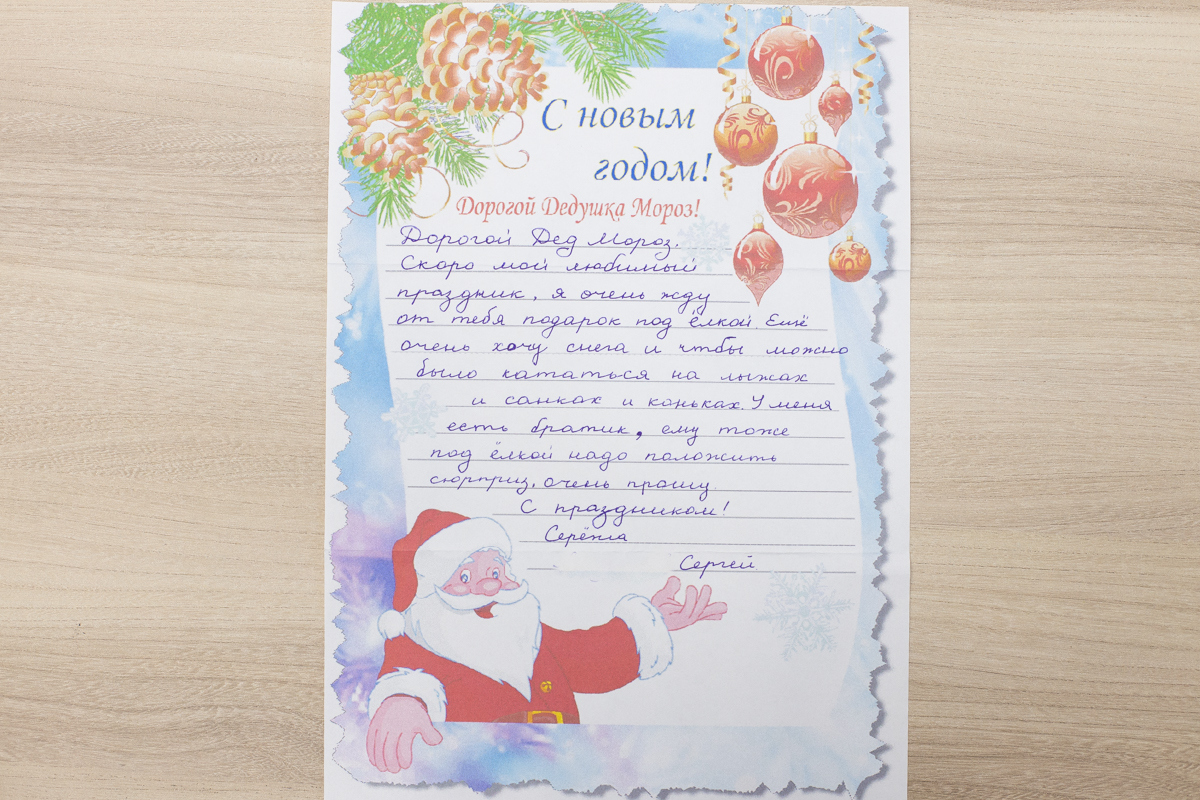 С новым
годом!
Дорогой Дедушка Мороз!
Дорогой Дед Мороз.
Скоро мой любимый
праздник, я очень жду
от тебя подарок под ёлкой. Ещё
очень хочу снега и чтбы можно
было кататься на лыжах
и санках и коньках. У меня
есть братик, ему тоже
под ёлкой надо положить
сюрприз, очень прошу.
С праздником!
Серёжа
Сергей